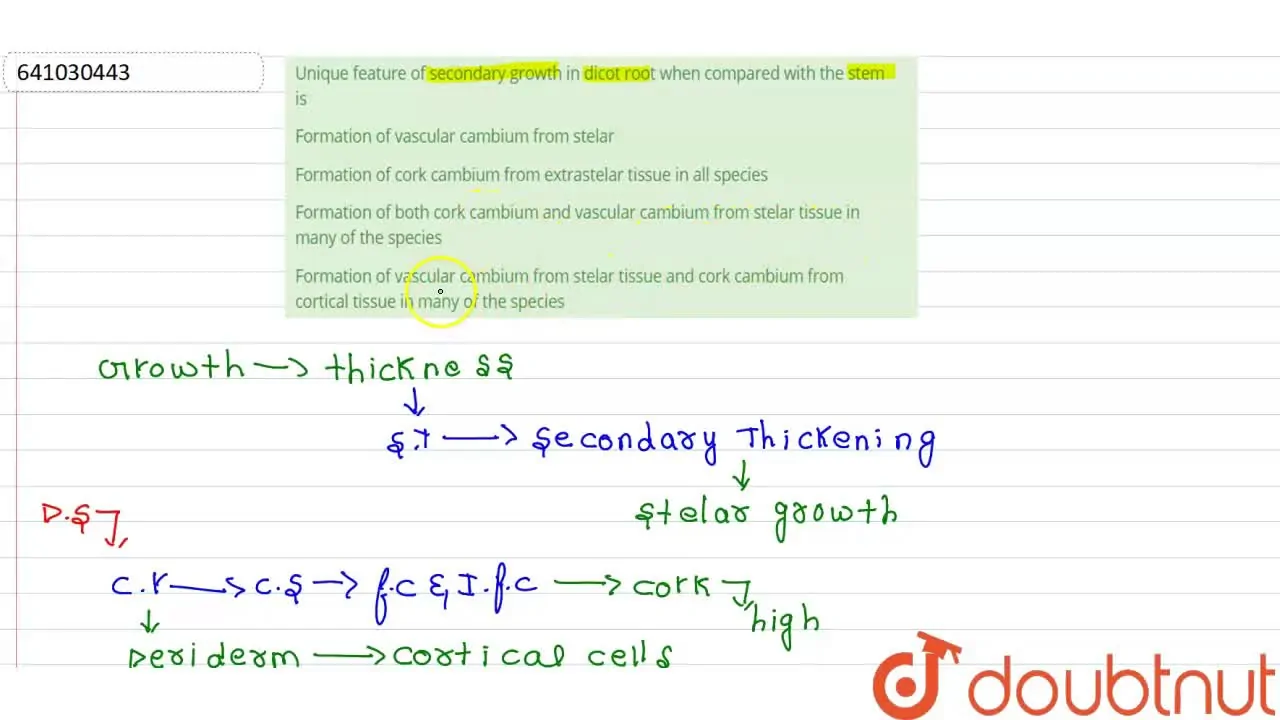 641030443
Unique feature of secondary growth in dicot root when compared with the stem
is
Formation of vascular cambium from stelar
Formation of cork cambium from extrastelar tissue in all species
Formation of both cork cambium and vascular cambium from stelar tissue in
many of the species
Formation of vascular cambium from stelar tissue and cork cambium from
cortical tissue in many of the species
Growth → thickness
S.T → Secondary Thickening
D.S
Stelar growth
C.R → C.S → f.c & I.f.c → cork
high
Periderm → cortical cells
doubtnut